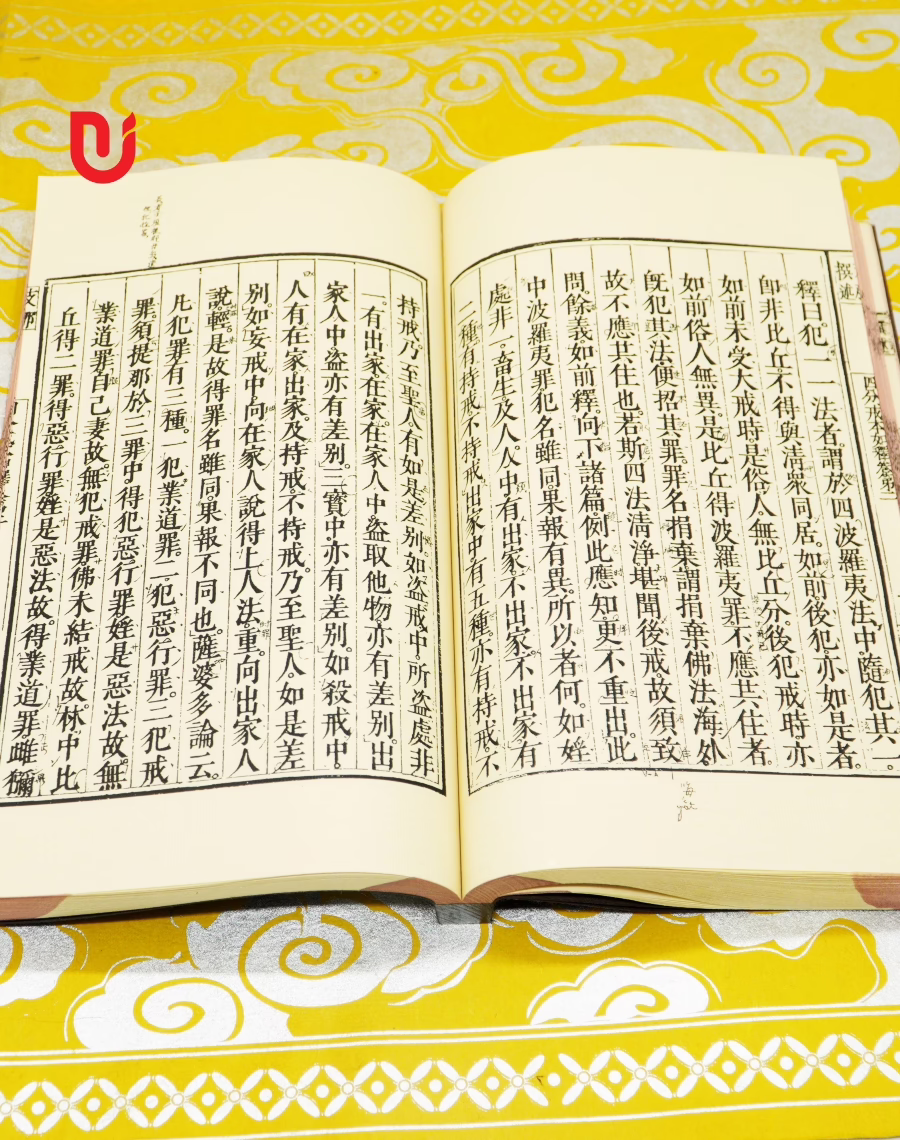 撰述
釋曰犯一一法者。謂於四波羅夷法中。隨犯其一。
卽非比丘。不得與清衆同居。如前後犯亦如是者。
如前未受大戒時。是俗人。無比丘分。後犯戒時亦
如前俗人無異。是比丘得波羅夷罪不應共住者。
旣犯其法。便招其罪。罪名捐棄。謂捐棄佛法海外
故不應共住也。若斯四法清淨堪聞後戒。故須致
問。餘義如前釋。向下諸篇例此應知。更不重出。此
中波羅夷罪犯名雖同。果報有異。所以者何。如婬
處非一。畜生及人。人中有出家不出家。不出家有
二種。有持戒不持戒。出家中有五種。亦有持戒。不
持戒乃至聖人。有如是差别。如盗戒中。所盗處非
一。有出家在家。在家人中盗取他物。亦有差别。出
家人中盗亦有差别。三寶中亦有差别。如殺戒中。
人有在家出家。及持戒不持戒。乃至聖人。如是差
别。如妄戒中。向在家人說得上人法。重。向出家人
說輕。是故得罪名雖同。果報不同也。薩婆多論云。
凡犯罪有三種。一犯業道罪。二犯惡行罪。三犯戒
罪。須提那於三罪中。得犯惡行罪。婬是惡法故。無
業道罪。自己妻故。無犯戒罪。佛未結戒故。林中比
丘得二罪。得惡行罪。婬是惡法故。得業道罪。雌獼